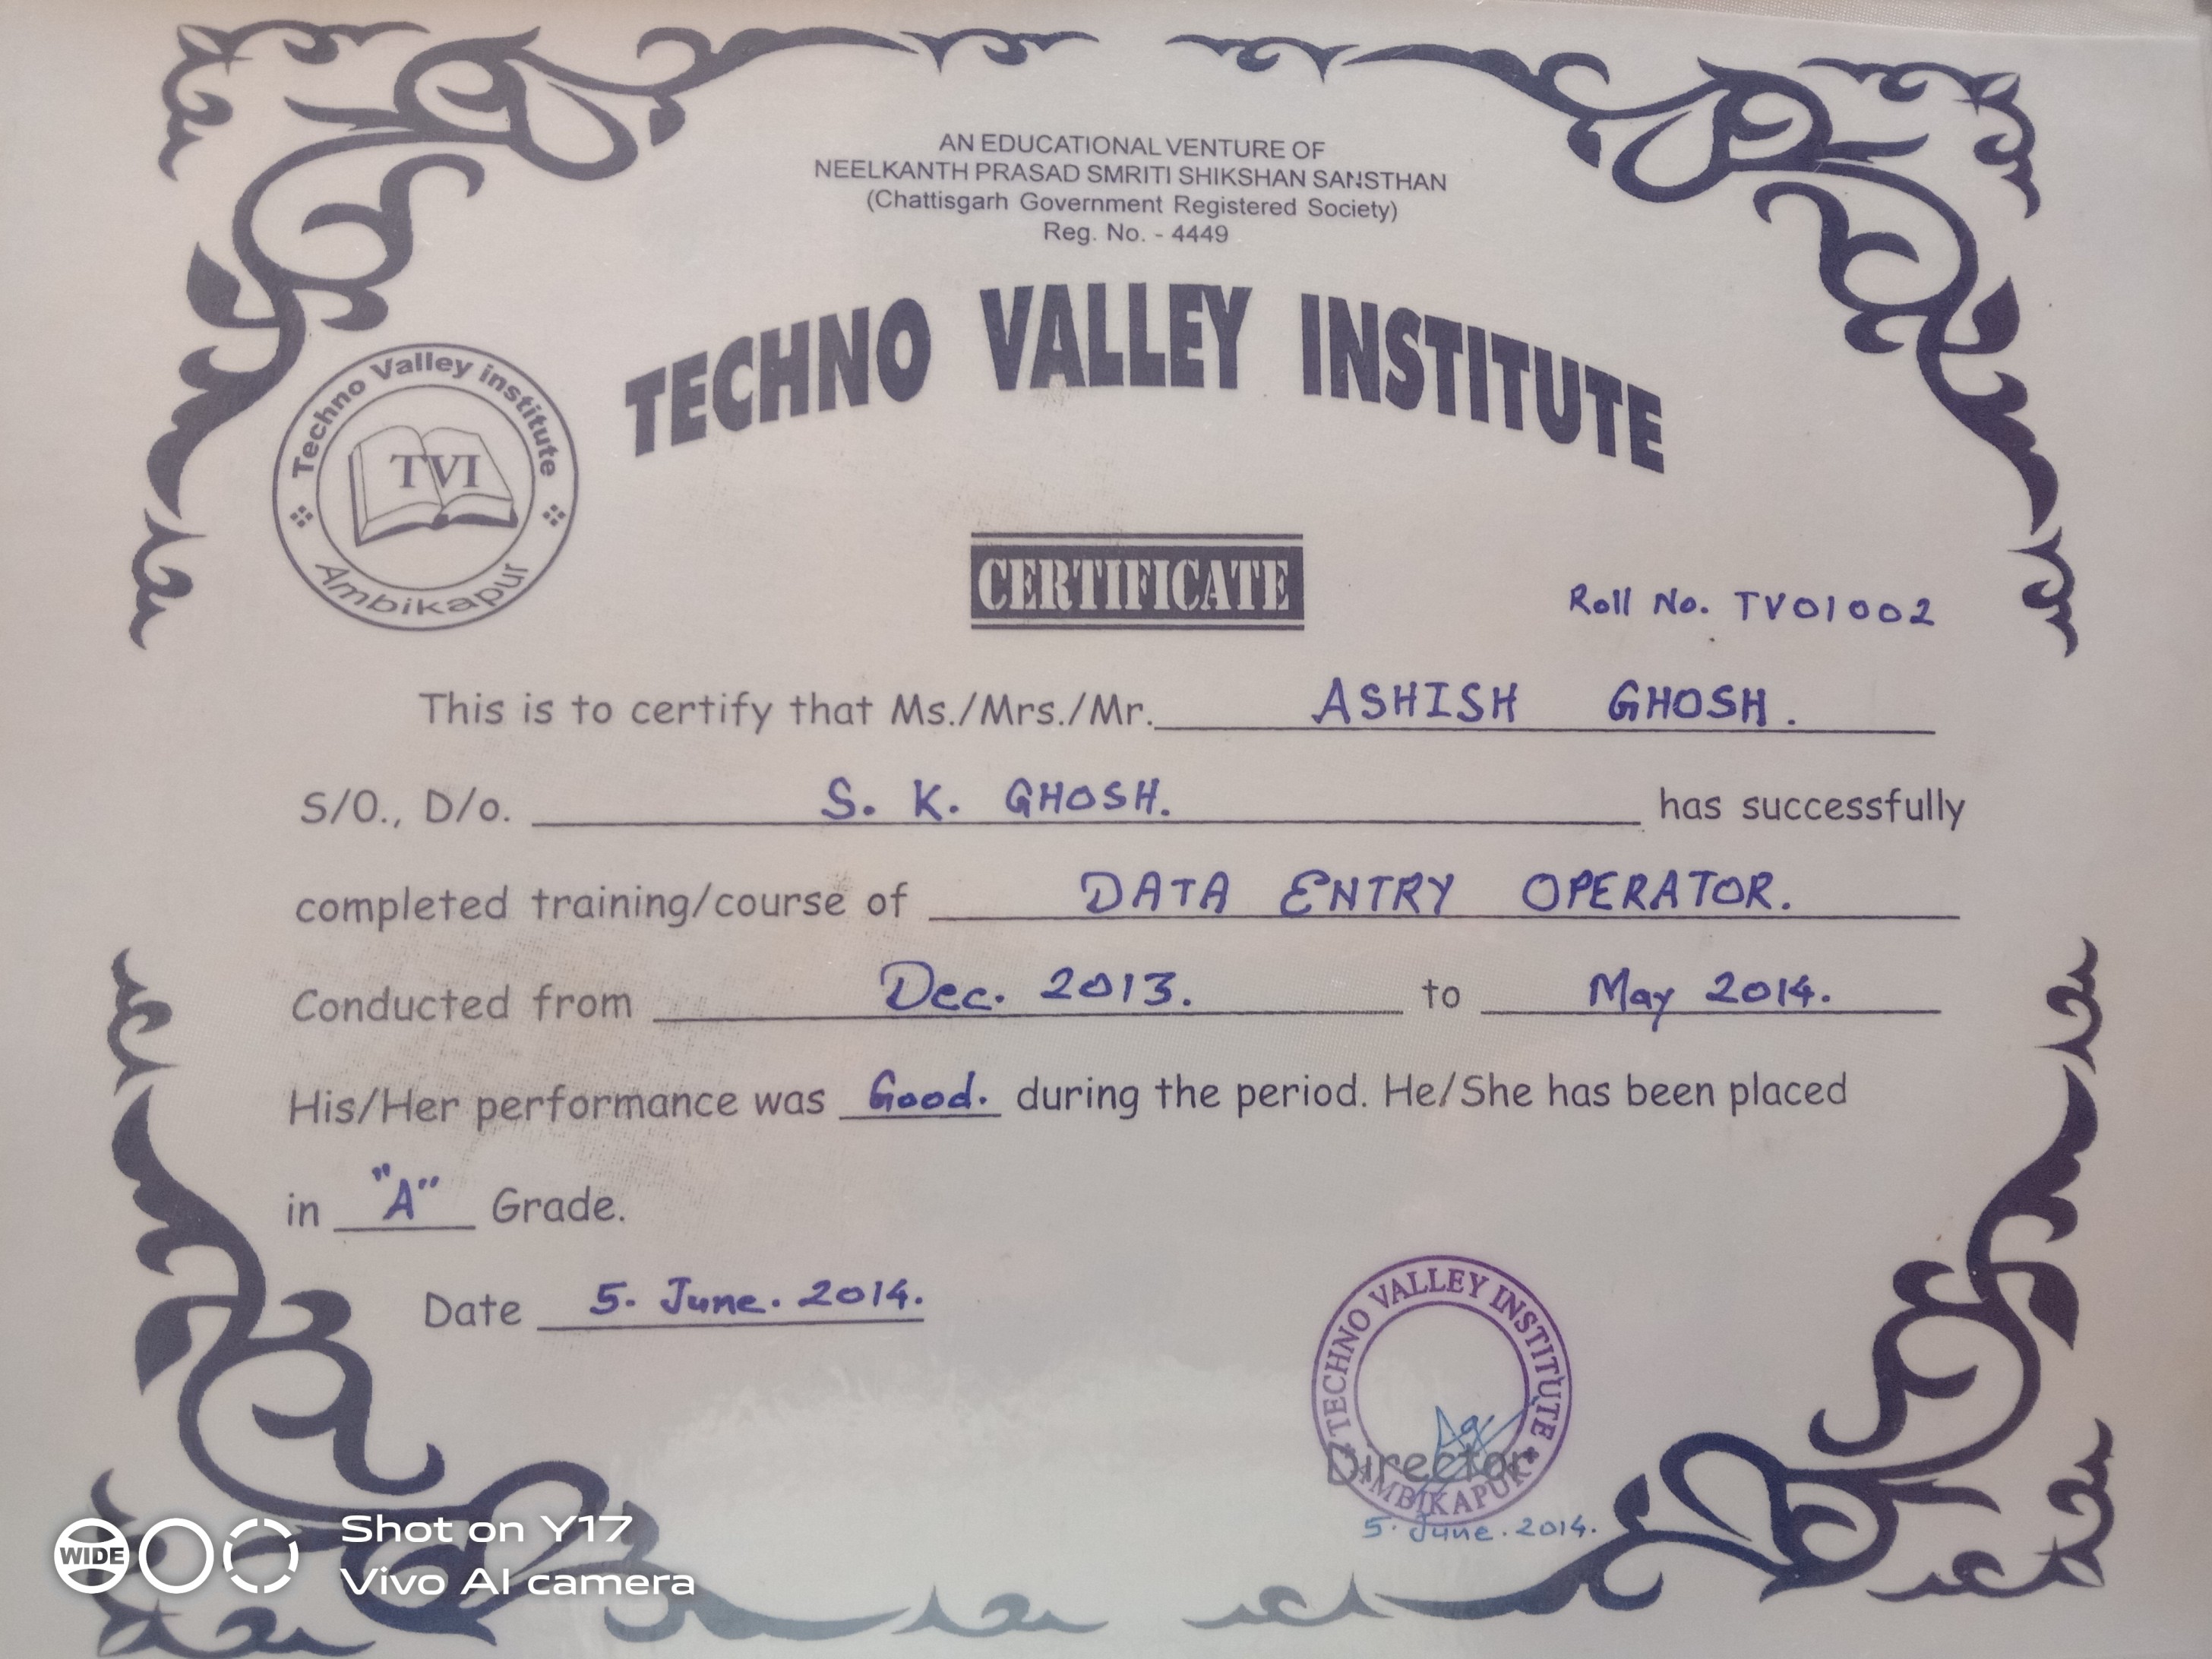 AN EDUCATIONAL VENTURE OF
NEELKANTH PRASAD SMRITI SHIKSHAN SANSTHAN
(Chattisgarh Government Registered Society)
Reg. No. - 4449
TECHNO VALLEY INSTITUTE
Techno Valley institute
TVI
Ambikapur
CERTIFICATE
Roll No. TV01002
This is to certify that Ms./Mrs./Mr. ASHISH GHOSH.
S/O., D/o. S. K. GHOSH. has successfully
completed training/course of DATA ENTRY OPERATOR.
Conducted from Dec. 2013. to May 2014.
His/Her performance was Good. during the period. He/She has been placed
in "A" Grade.
Date 5. June. 2014.
TECHNO VALLEY INSTITUTE
Director
AMBIKAPUR
5. June. 2014.
WIDE
Shot on Y17
Vivo AI camera